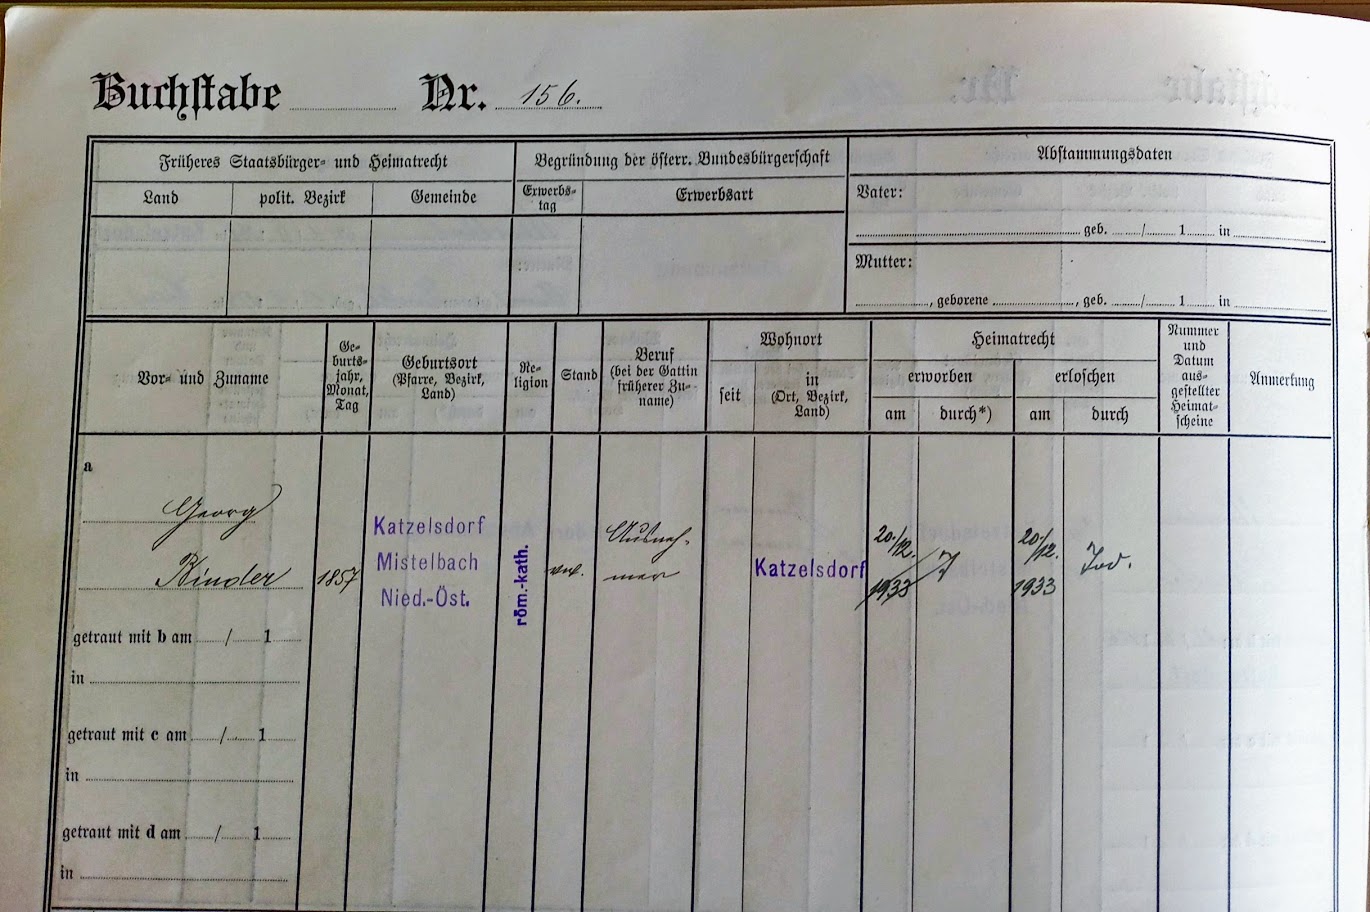 Buchstabe Nr. 156.
Früheres Staatsbürger- und Heimatrecht
Begründung der österr. Bundesbürgerschaft
Abstammungsdaten
Land
polit. Bezirk
Gemeinde
Erwerbs-
tag
Erwerbsart
Vater:
geb. / 1 in
Mutter:
, geborene , geb. / 1 in
Vor- und Zuname
Ge-
burts-
jahr,
Monat,
Tag
Geburtsort
(Pfarre, Bezirk,
Land)
Re-
ligion
Stand
Beruf
(bei der Gattin
früherer Zu-
name)
Wohnort
seit
in
(Ort, Bezirk,
Land)
Heimatrecht
erworben
am
durch*)
erloschen
am
durch
Nummer
und
Datum
aus-
gestellter
Heimat-
scheine
Anmerkung
a
Georg
Binder
1857
Katzelsdorf
Mistelbach
Nied.-Öst.
röm.-kath.
Ausneh-
mer
Katzelsdorf
20/12.
1933
20/12.
1933
Tod.
getraut mit b am / 1
in
getraut mit c am / 1
in
getraut mit d am / 1
in